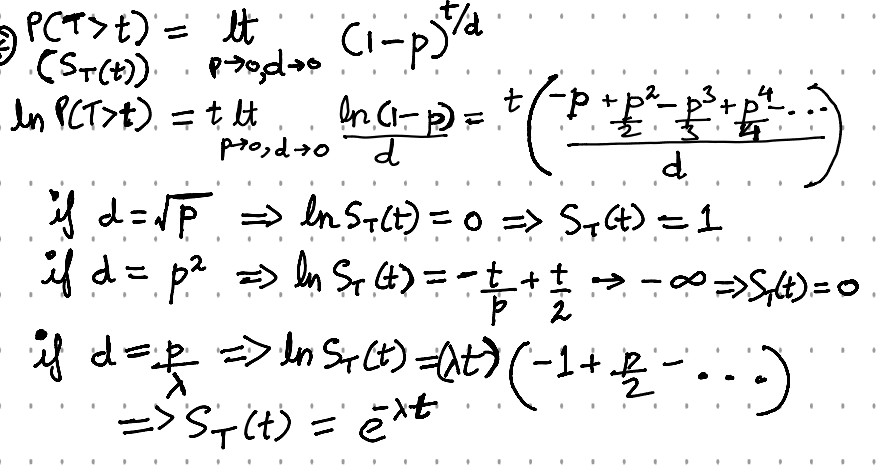 P(T>t) = lt (1-p)^{t/d}
(S_T(t)) p→0, d→0
ln P(T>t) = t lt ln(1-p)/d = t((-p + p^2/2 - p^3/3 + p^4/4 - ...)/d)
p→0, d→0
if d = √p ⇒ ln S_T(t) = 0 ⇒ S_T(t) = 1
if d = p^2 ⇒ ln S_T(t) = -t/p + t/2 → -∞ ⇒ S_T(t) = 0
if d = p/λ ⇒ ln S_T(t) = (λt)(-1 + p/2 - ...)
⇒ S_T(t) = e^{-λt}